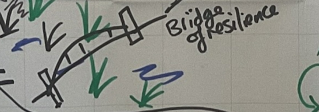 Bridge
of Resilience